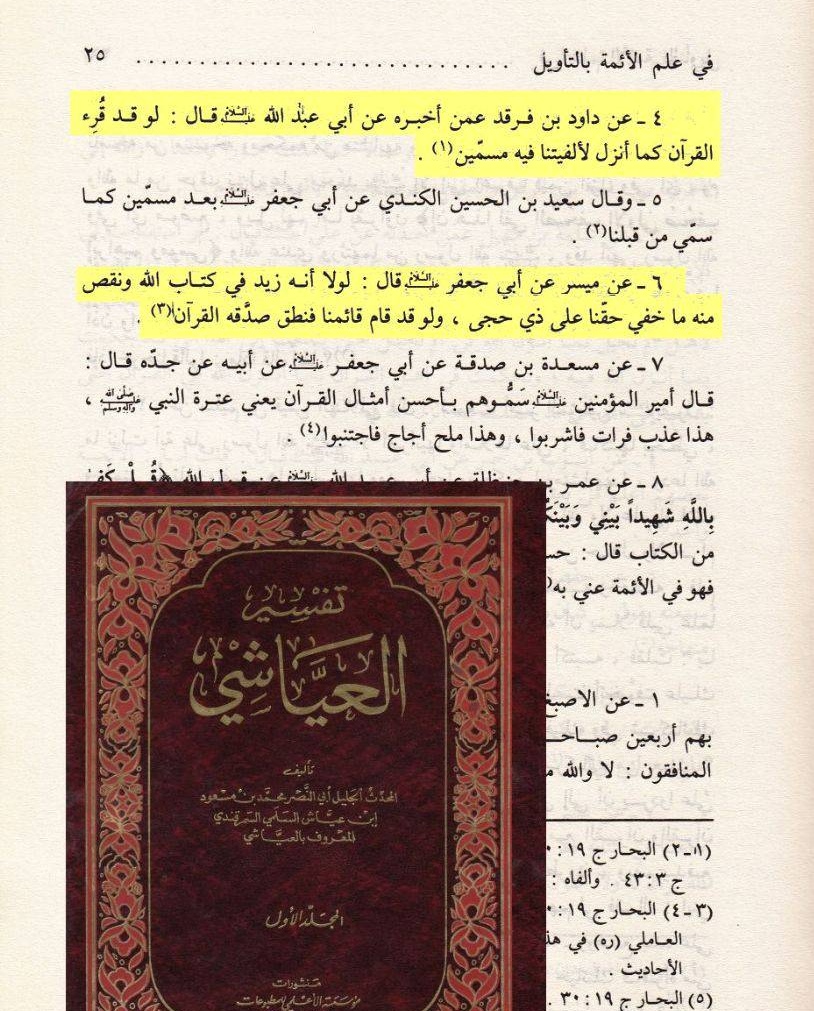 في علم الأئمة بالتأويل ................................ ٢٥
٤ ـ عن داود بن فرقد عمن أخبره عن أبي عبد الله عليه السلام قال : لو قد قُرِء
القرآن كما أنزل لألفيتنا فيه مسمّين(١) .
٥ ـ وقال سعيد بن الحسين الكندي عن أبي جعفر عليه السلام بعد مسمّين كما
سمّي من قبلنا(٢) .
٦ ـ عن ميسر عن أبي جعفر عليه السلام قال : لولا أنه زيد في كتاب الله ونقص
منه ما خفي حقّنا على ذي حجى ، ولو قد قام قائمنا فنطق صدَّقه القرآن(٣) .
٧ ـ عن مسعدة بن صدقة عن أبي جعفر عليه السلام عن أبيه عن جدّه قال :
قال أمير المؤمنين عليه السلام سَمُّوهم بأحسن أمثال القرآن يعني عترة النبي صلى الله عليه وآله وسلم ،
هذا عذب فرات فاشربوا ، وهذا ملح أجاج فاجتنبوا(٤) .
٨ ـ عن عمر بن حنظلة عن أبي عبد الله عليه السلام عن قول الله ﴿قُلْ كَفى
بِاللَّهِ شَهِيداً بَيْنِي وَبَيْنَكُ
من الكتاب قال : حس
فهو في الأئمة عني به(
١ ـ عن الاصبغ
بهم أربعين صباحـ
المنافقون : لا والله م
(١ـ٢) البحار ج ١٩ : ٠
ج ٣ : ٤٣ . وألفاه :
(٣ ـ ٤) البحار ج ١٩ : ٠
العاملي (ره) في هذ
الأحاديث .
(٥) البحار ج ١٩ : ٣٠ .
تفسير
العيَّاشي
تأليف
المحدث الجليل أبي النضر محمد بن مسعود
ابن عياش السلمي السمرقندي
المعروف بالعياشي
المجلد الأول
منشورات
مؤسسة الأعلمي للمطبوعات